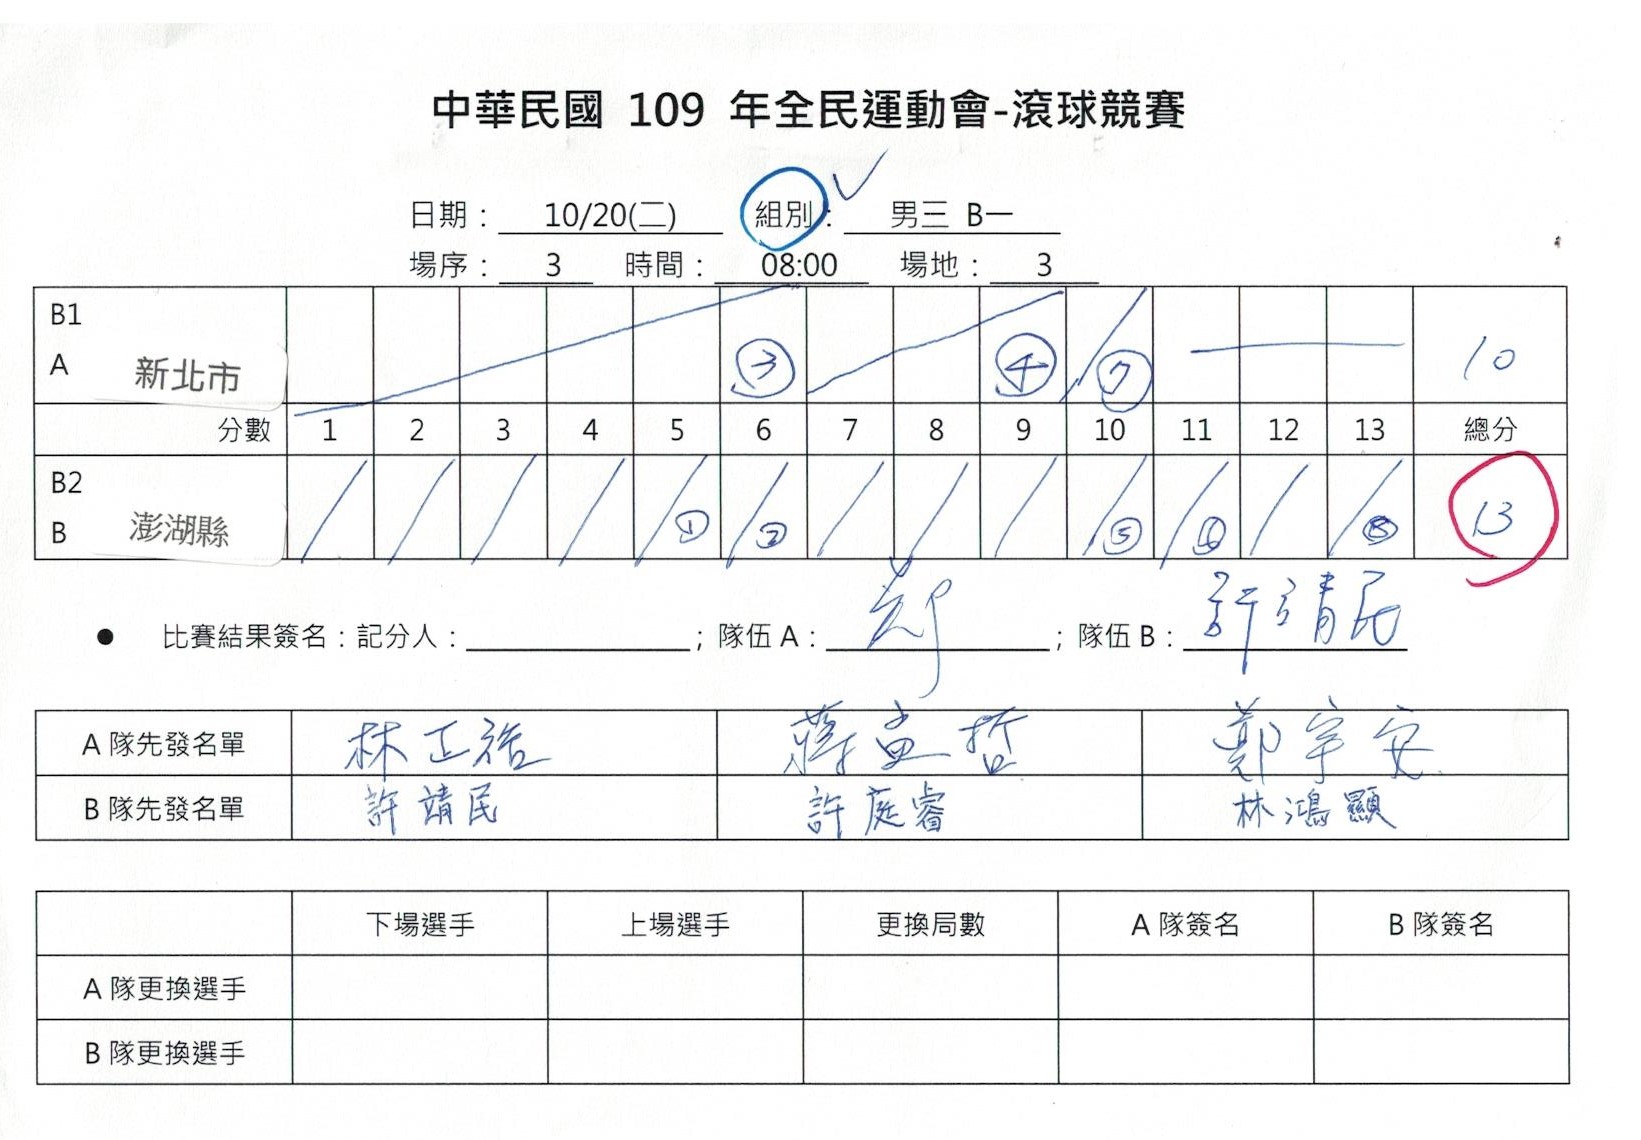 中華民國 109 年全民運動會-滾球競賽
日期： 10/20(二) 組別： 男三 B一
場序： 3 時間： 08:00 場地： 3
B1
A 新北市 ③ ④ 10
分數 1 2 3 4 5 6 7 8 9 10 11 12 13 總分
B2
B 澎湖縣 ① ② ⑤ ⑥ 13
● 比賽結果簽名：記分人： ；隊伍 A： 鄭 ；隊伍 B： 許靖民
A 隊先發名單 林正 蔣孟哲 鄭宇安
B 隊先發名單 許靖民 許庭睿 林鴻顯
下場選手 上場選手 更換局數 A 隊簽名 B 隊簽名
A 隊更換選手
B 隊更換選手